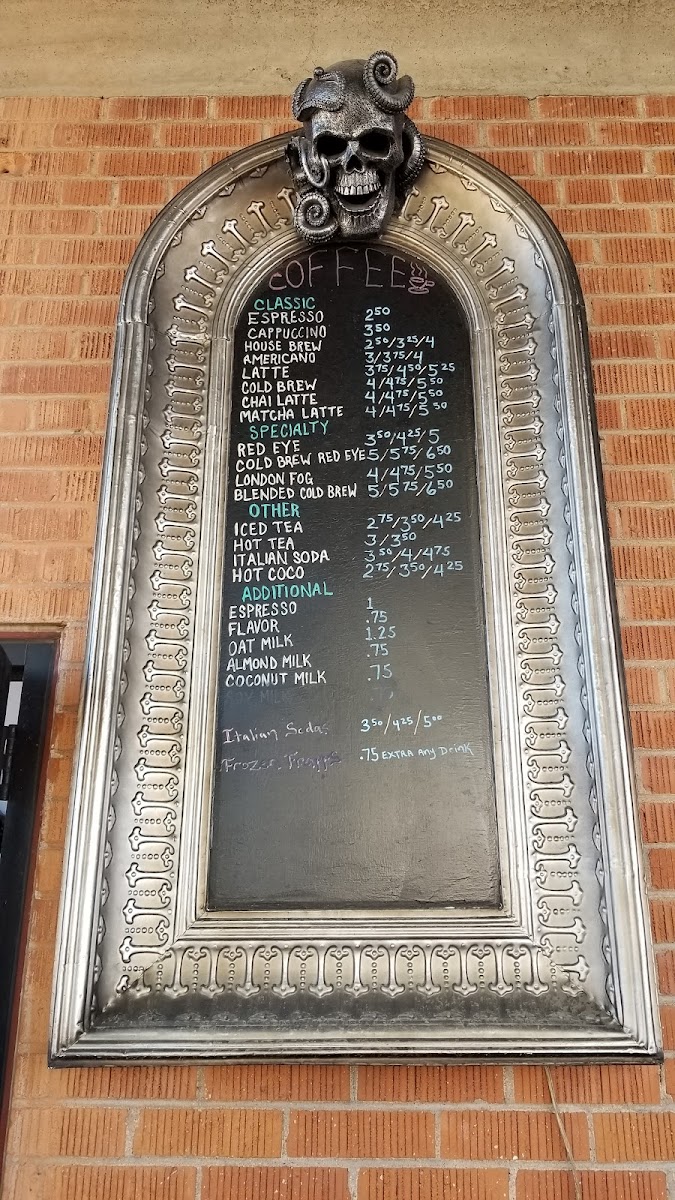 COFFEE
CLASSIC
ESPRESSO 2.50
CAPPUCCINO 3.50
HOUSE BREW 2.50/3.25/4
AMERICANO 3/3.75/4
LATTE 3.75/4.50/5.25
COLD BREW 4/4.75/5.50
CHAI LATTE 4/4.75/5.50
MATCHA LATTE 4/4.75/5.50
SPECIALTY
RED EYE 3.50/4.25/5
COLD BREW RED EYE 5/5.75/6.50
LONDON FOG 4/4.75/5.50
BLENDED COLD BREW 5/5.75/6.50
OTHER
ICED TEA 2.75/3.50/4.25
HOT TEA 3/3.50
ITALIAN SODA 3.50/4/4.75
HOT COCO 2.75/3.50/4.25
ADDITIONAL
ESPRESSO 1
FLAVOR .75
OAT MILK 1.25
ALMOND MILK .75
COCONUT MILK .75
SOY MILK
Italian Sodas 3.50/4.25/5.00
Frozen .75 EXTRA Any Drink